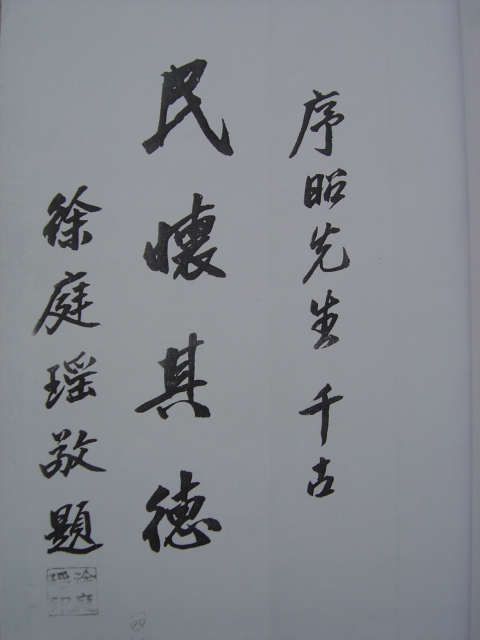 序昭先生千古
民懷其德
徐庭瑶敬題
四